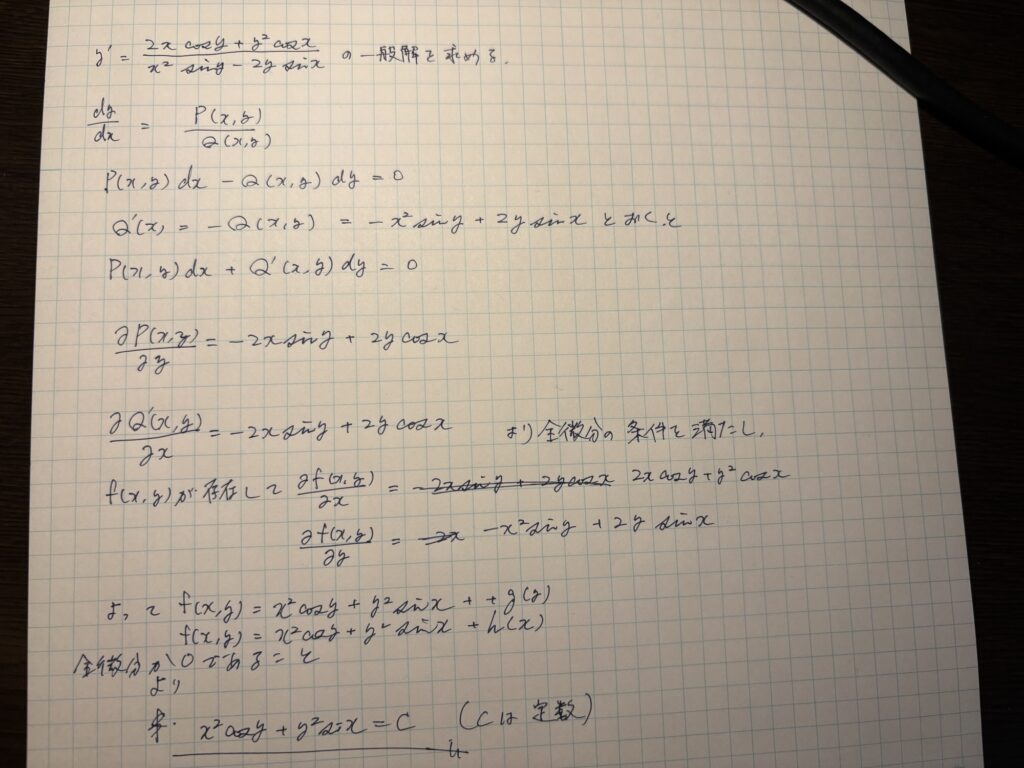 y' = (2x cosy + y² cosx) / (x² siny - 2y sinx) の一般解を求める.
dy/dx = P(x,y) / Q(x,y)
P(x,y) dx - Q(x,y) dy = 0
Q'(x, = -Q(x,y) = -x² siny + 2y sinx とおくと
P(x,y) dx + Q'(x,y) dy = 0
∂P(x,y)/∂y = -2x siny + 2y cosx
∂Q'(x,y)/∂x = -2x siny + 2y cosx より全微分の条件を満たし,
f(x,y)が存在して ∂f(x,y)/∂x = -2x siny + 2y cosx 2x cosy + y² cosx
∂f(x,y)/∂y = -2x -x² siny + 2y sinx
よって f(x,y) = x² cosy + y² sinx + +g(y)
f(x,y) = x² cosy + y² sinx + h(x)
全微分が0であること
より
x² cosy + y² sinx = C (Cは定数)